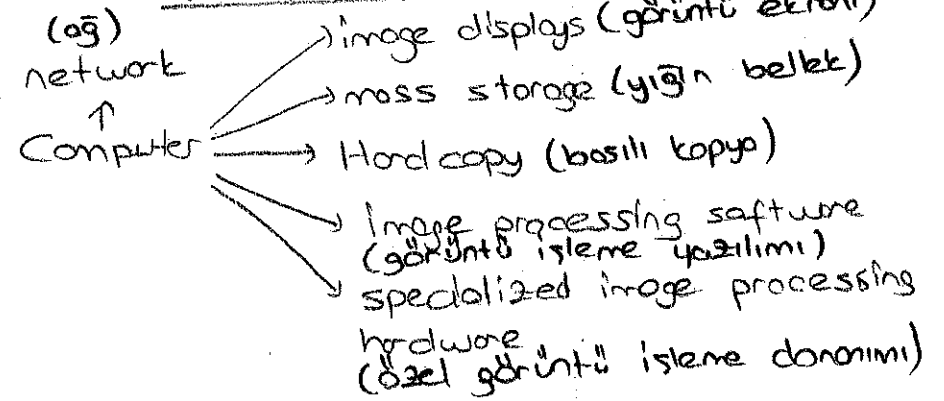 (ağ)
network
↑
Computer
→ image displays (görüntü ekranı)
→ mass storage (yığın bellek)
→ Hard copy (basılı kopya)
→ image processing saftware
(görüntü işleme yazılımı)
→ specialized image processing
hardware
(özel görüntü işleme donanımı)